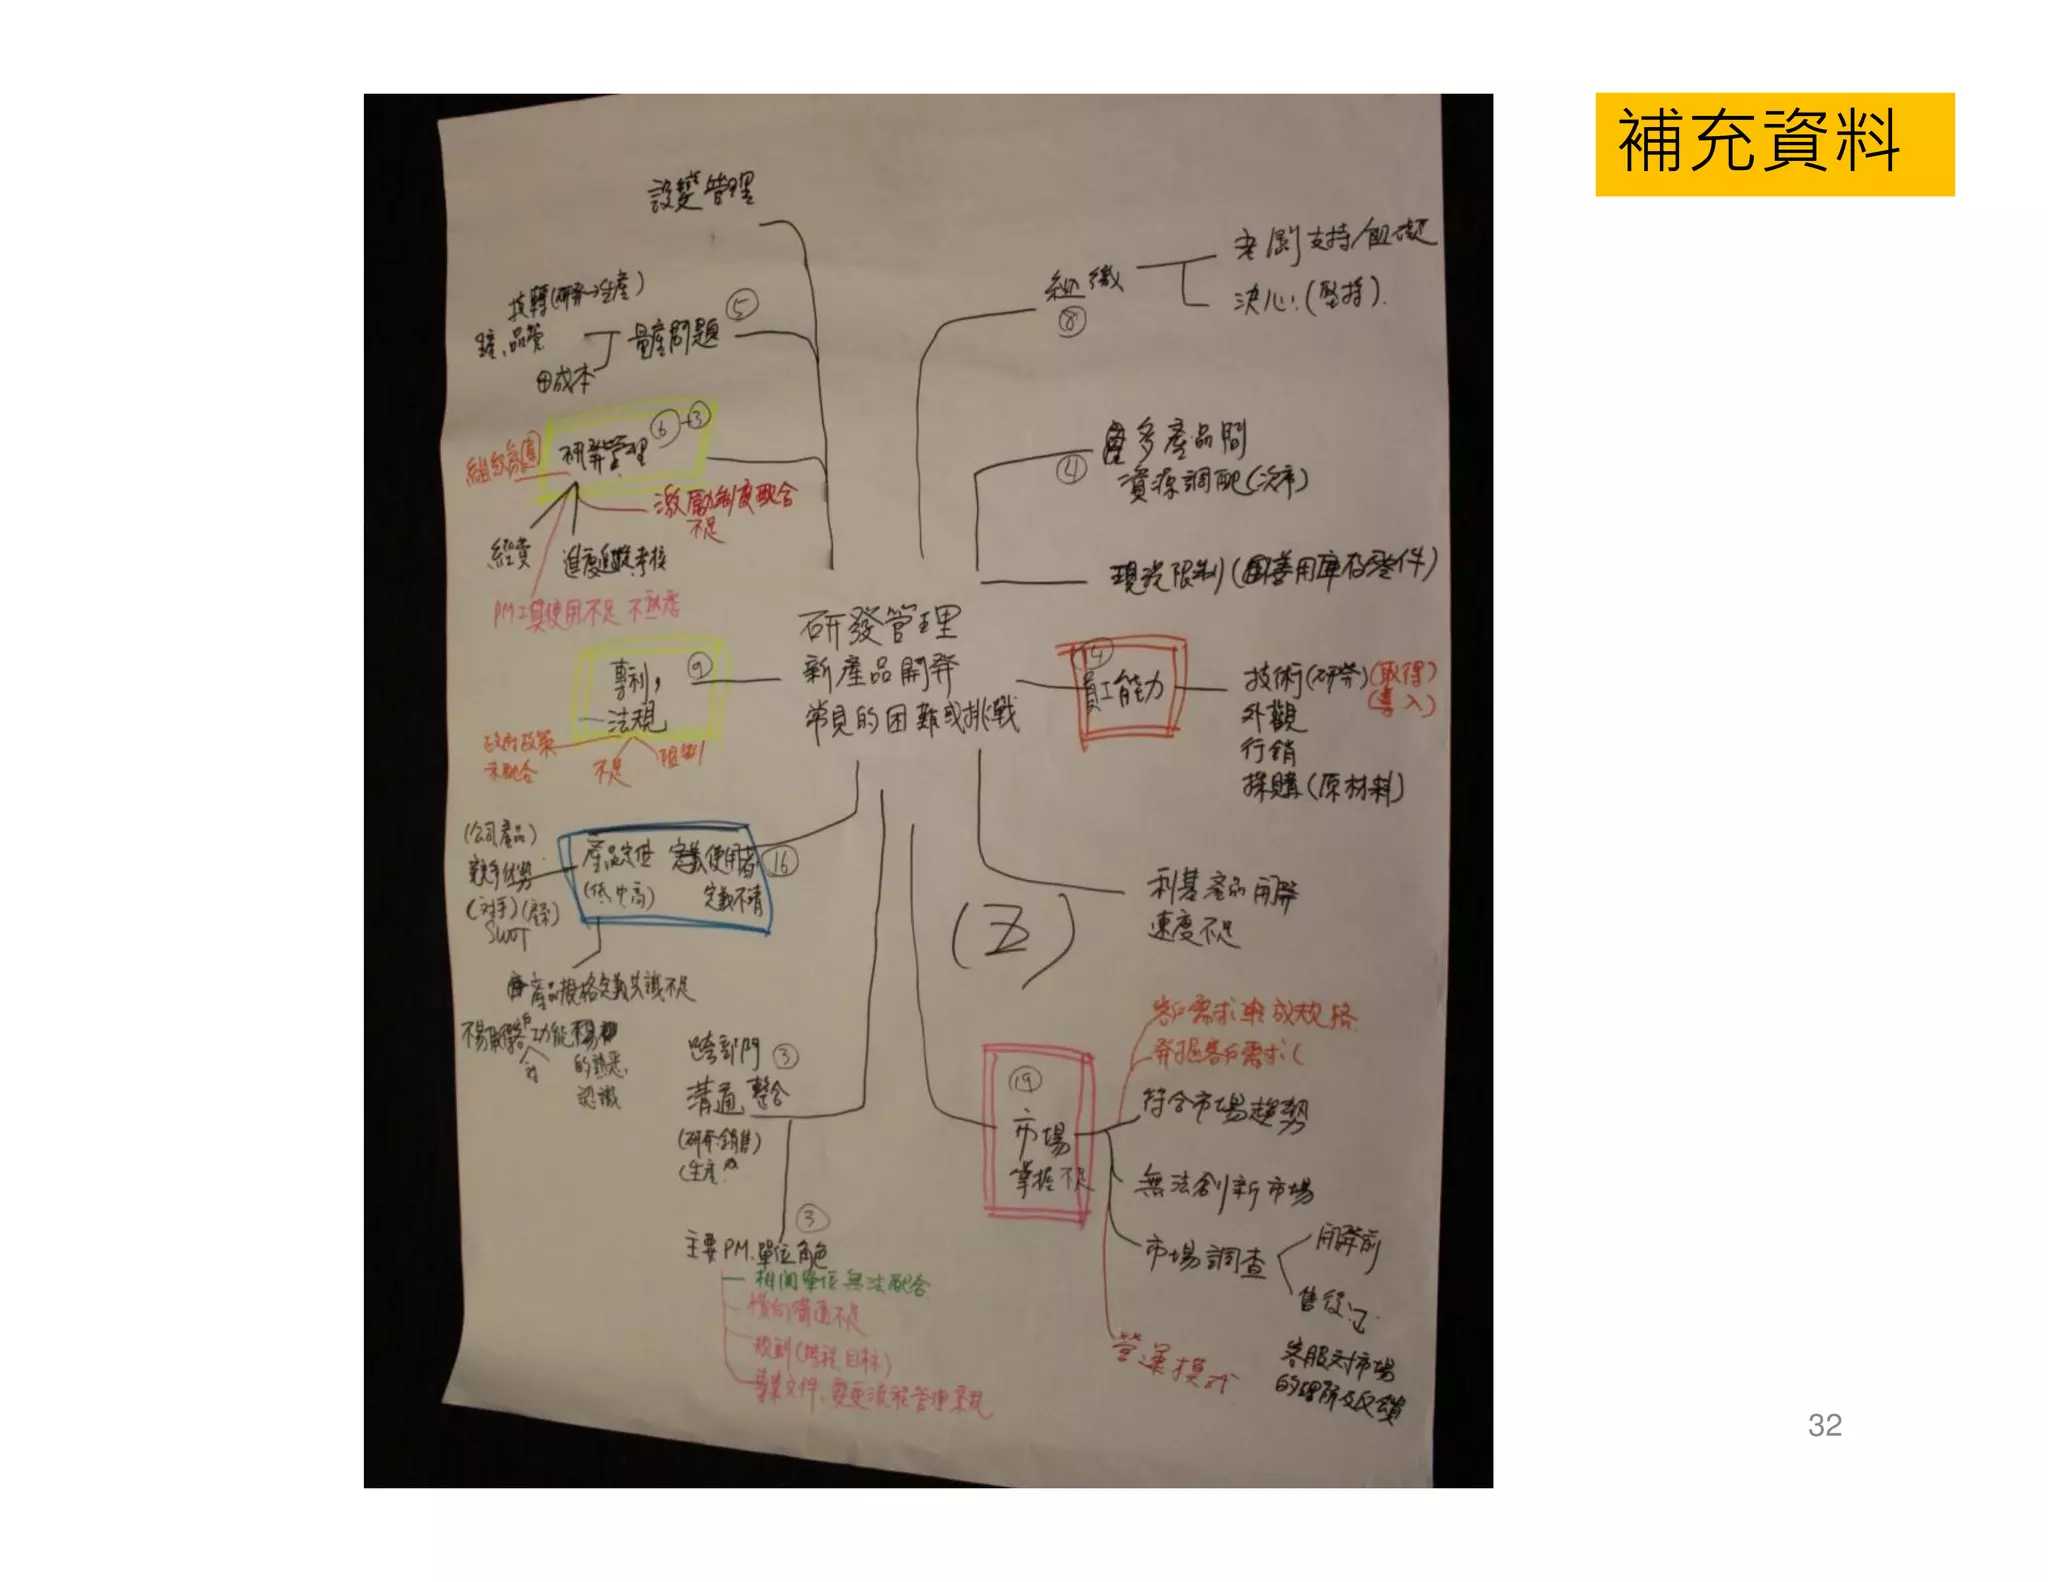 補充資料
設變管理
技轉(研發→生產)
量產問題 ⑤
品管
成本
研發管理 ⑥+③
激勵制度配合
不足
經費
進度追蹤考核
PM工具使用不足 不熟悉
組織
⑧
支持/阻礙
決心:(堅持).
④
多產品間
資源調配(次序)
現況限制(善用庫存零件)
研發管理
新產品開發
常見的困難或挑戰
專利, ⑨
法規
政府政策
未配合
不足
限制
員工能力
技術(研發)(取得)
(導入)
外觀
行銷
採購(原材料)
(公司產品)
競爭優勢
(對手)
SWOT
產品定位 定義使用者 ⑯
(低中高) 定義不清
產品規格定義共識不足
功能
的熟悉,
認識
利基產品開發
速度不足
(Z)
跨部門 ③
溝通 整合
(研發銷售)
(生產
③
主要PM.單位角色
相關單位無法配合
橫向溝通不足
規劃(時程目標)
⑲
市場
掌握不足
客戶需求轉成規格
發掘客戶需求(
符合市場趨勢
無法創新市場
市場調查
開發前
售後
營運模式
客服對市場
的理解及反饋
32